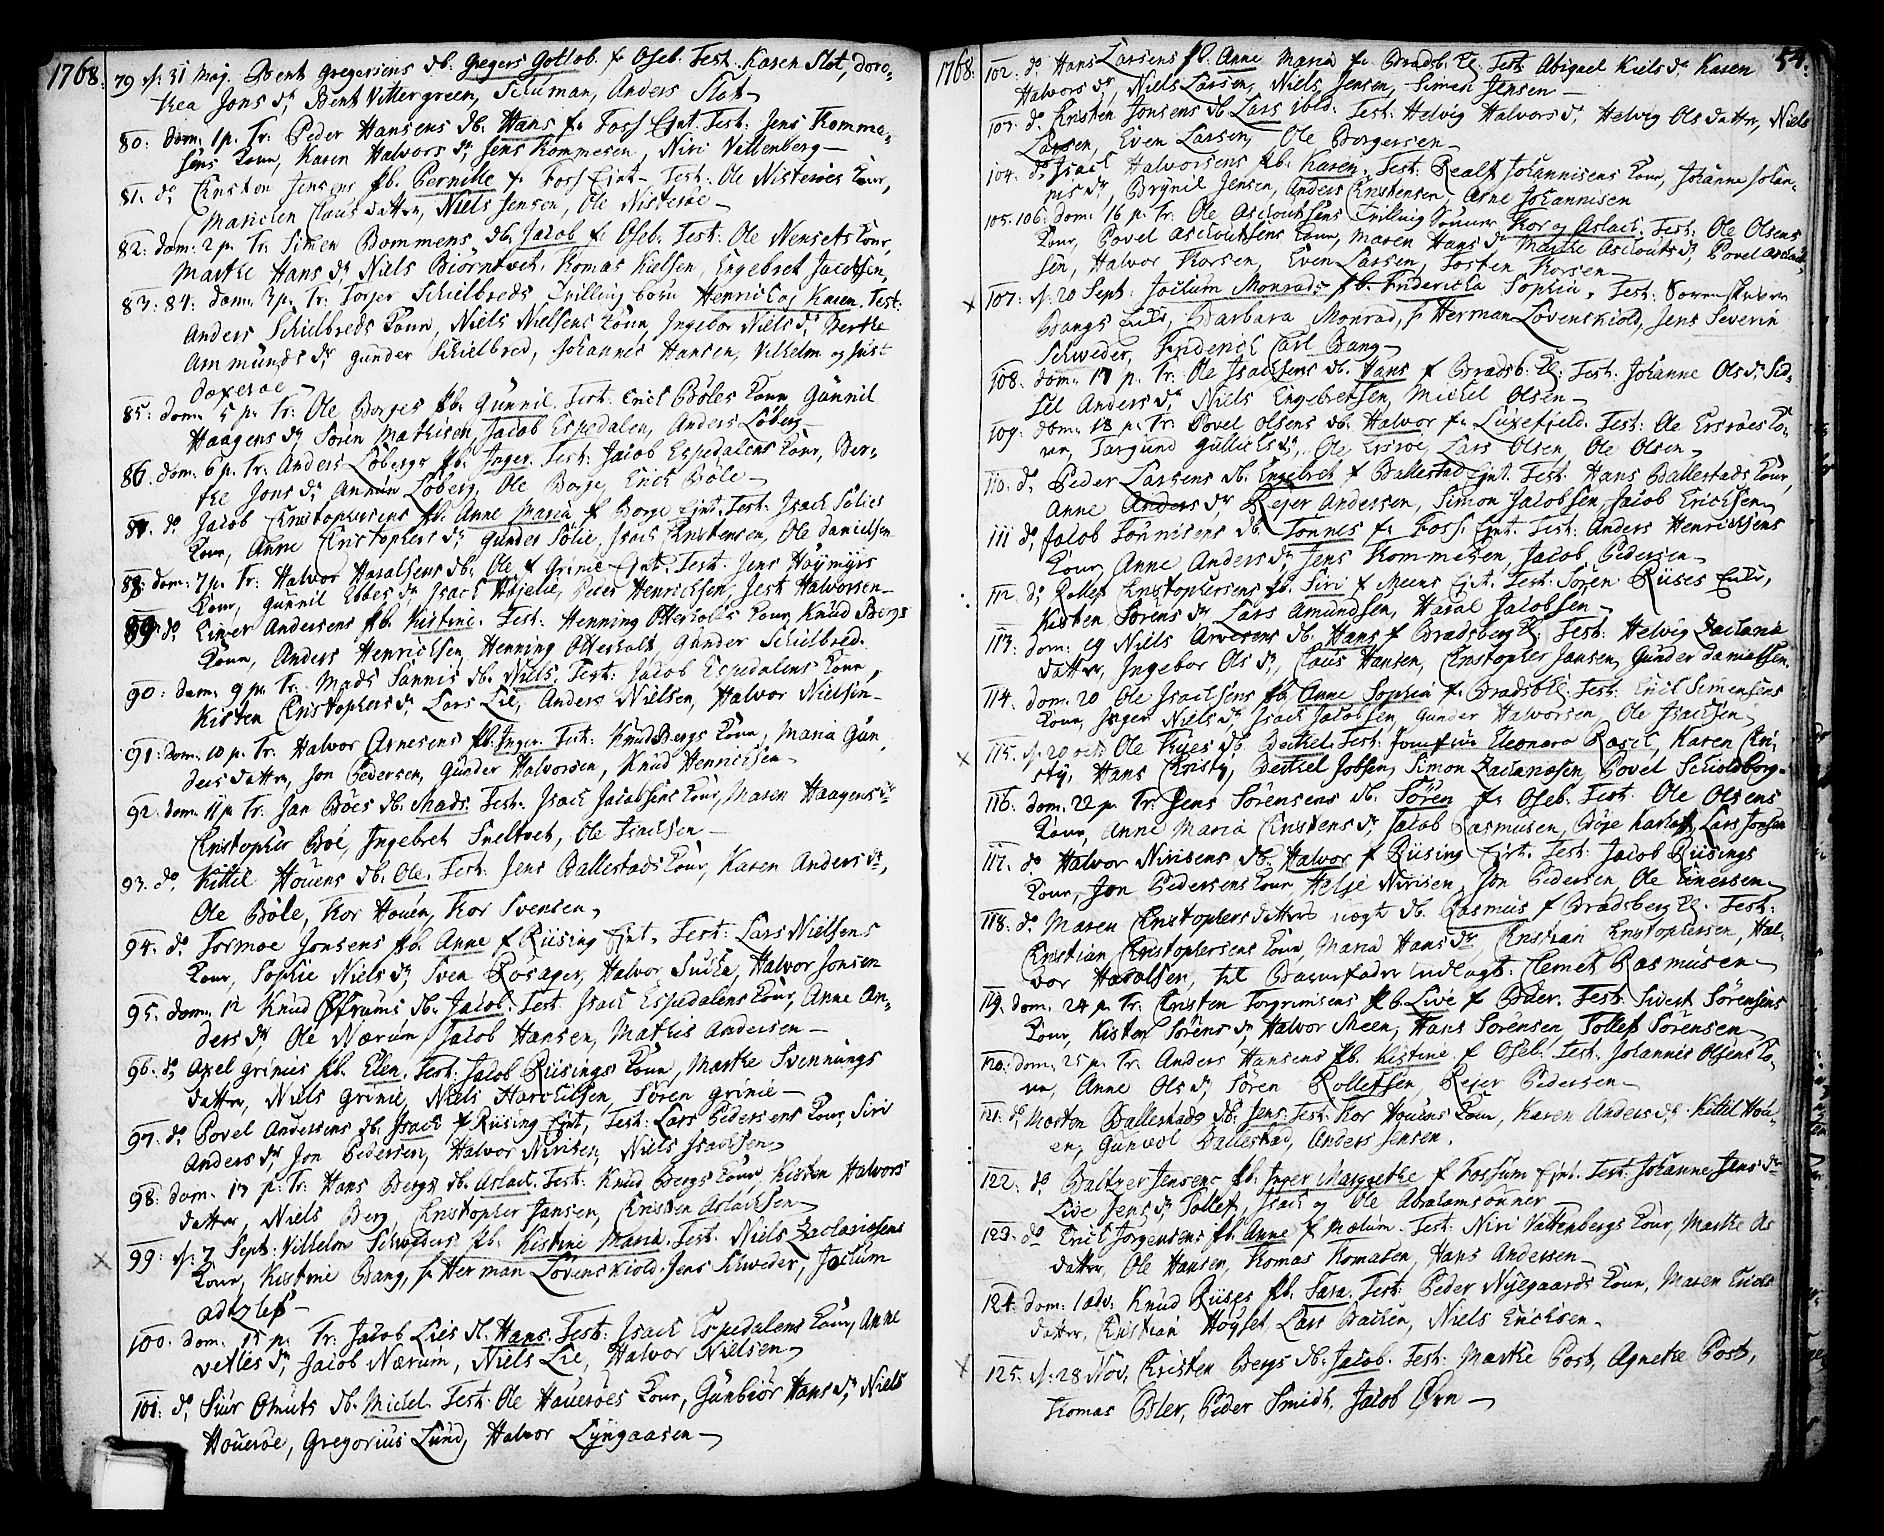 1768.
79 d: 31 Maj. Bent Gregersens db. Gregers Gotlob. f. Oseb. Test. Karen Slot, Doro-
thea Jons dr Bent Vittergreen, Schuman, Anders Slot
80: Dom. 1 p. Tr: Peder Hansens db. Hans fr. Foss Ejnt. Test: Jens Thomme-
sens Konn, Karen Halvors dr Jens Thommesen, Niri Vattenberg
81. do Christen Jensens pb. Pernille f. Foss Ejnt. Test: Ole Nisteröes Konn,
Marichen Claus datter, Niels Jensen, Ole Nisteröe
82: Dom. 2 p. Tr. Simen Bommens db. Jacob f. Oseb. Test: Ole Nensets Konn,
Marthe Hans dr Niels Biörntvet, Thomas Kielsen, Engebret Jacobsen,
83: 84: Dom. 3 p. Tr: Torjer Schilbreds Tvilling börn Henric og Karen. Test:
Anders Schilbreds Konn, Niels Nielsens Konn, Ingebor Niels dr Berthe
Ammunds dr Gunder Schilbred, Johannes Hansen, Vilhelm og Just
Doxeröe
85: Dom. 5 p. Tr: Ole Borges pb. Gunnil. Test: Erich Böles Konn Gunnil
Haagens dr Sören Mathisen, Jacob Espedalen, Anders Löberg
86. Dom. 6 p. Tr: Anders Löbergs pb. Inger. Test: Jacob Espedalens Konn, Ber-
the Jons dr Annun Löberg, Ole Borge, Erich Böle
87. do Jacob Christophersens pb. Anne Maria f. Borge Ejnt. Test: Isach Solies
Konn, Anne Christophers dr Gunder Solie, Isach Christensen, Ole Danielsen
88: Dom: 7 p. Tr: Halvor Haralsens db. Ole f Grinie Ejnt. Test: Jens Höymyrs
Konn, Gunnil Ebbes dr Isach Hosjelie, Peder Henrichsen, Jest Halvorsen
89 do Einer Andersens pb. Kistine. Test: Henning Otterholts Konn Knud Bergs
Konn, Anders Henrichsen, Henning Otterholt, Gunder Schilbred.
90: Dom. 9 p. Tr: Mads Sannis db. Niels, Test: Jacob Espedalens Konn,
Kisten Christophers dr Lars Lie, Anders Nielsen, Halvor Nielsen
91: Dom: 10 p. Tr. Halvor Arnesens pb. Inger. Test: Knud Bergs Konn, Maria Gun-
ders datter, Jon Pedersen, Gunder Halvorsen, Knud Henrichsen
92: Dom. 11 p Tr: Jan Böes db. Mads. Test: Isach Jacobsens Konn, Maren Haagens dr
Christopher Böe, Ingebret Sneltvet, Ole Isachsen
93. do Kittil Houens db. Ole. Test: Jens Ballestads Konn, Karen Anders dr,
Ole Böle, Thor Houen, Thor Svensen,
94. do Tormoe Jonsens pb. Anne f. Riising Ejnt. Test: Lars Nielsens
Konn, Sophie Niels dr Sven Rosager, Halvor Sucke, Halvor Jonsen
95. Dom. 12 Knud Östrums db. Jacob. Test Isach Espedalens Konn, Anne An-
ders dr Ole Nærum, Jacob Hansen, Mathis Andersen
96: do Axel Grinies pb. Elen. Test: Jacob Riisings Konn, Marthe Svennungs
datter, Niels Grinie, Niels Harchilsen, Sören Grinie
97. do Povel Andersens db. Isach f Riising Ejnt, Test: Lars Pedersens Konn, Siri
Anders dr Jon Pedersen, Halvor Nirisen, Niels Isachsen
98: Dom. 13 p. Tr: Hans Bergs db. Aslach. Test: Knud Bergs Konn, Kisten Halvors
datter, Niels Berg, Christopher Jansen, Christen Aslachsen
99: d: 7 Sept: Vilhelm Schweders pb. Kistine Maria. Test: Niels Zachariasens
Konn, Kistine Bang, hr Herman Lövenskiold, Jens Schweder, Jochum
Adtzlef
100: Dom. 15 p. Tr: Jacob Lies db. Hans. Test: Isach Espedalens Konn, Anne
Vetles dr Jacob Nærum, Niels Lie, Halvor Nielsen
101: do Siur Omuts db. Michel. Test: Ole Haueröes Konn, Gunbiör Hans dr Niels
Houeröe, Gregorius Lund, Halvor Lyngaasen
1768.
54.
102: do Hans Larsens pb. Anne Maria fr. Bradsb. Test: Abigael Kiels dr Karen
Halvors dr, Niels Larsen, Niels Jensen, Simen Jensen
103: do Christen Jonsens db Lars ibid. Test: Helvig Halvors dr Helvig Ols datter, Niels
Larsen, Even Larsen, Ole Borgersen
104: do Isach Halvorsens pb. Karen. Test: Realf Johannisens Konn, Johanne Johan-
nis dr Brynil Jensen, Anders Christensen, Arne Johannisen
105. 106: Dom: 16 p. Tr: Ole Aschoutsens Tvilling Sönner Thor og Aslach. Test: Ole Olsens
Konn, Povel Aschoutsens Konn, Maren Hans dr Marthe Aschouts dr Povel Aschout-
sen, Halvor Thorsen, Even Larsen, Torsten Thorsen
107: d: 20 Sept: Jochum Monrads pb. Friderica Sophia. Test: Sorenskriver
Bangs Enke, Barbara Monrad, hr Herman Lövenskiold, Jens Severin
Schweder, Friderich Carl Bang
108: Dom: 17 p. Tr: Ole Isachsens db. Hans f Bradsb. Test: Johanne Ols dr Sid-
sel Anders dr Niels Engebretsen, Michel Olsen
109: Dom. 18 p. Tr: Povel Olsens db. Halvor fr. Luxefjeld. Test: Ole Ersröes Ko-
nn, Targund Gullichs dr, Ole Ersröe, Lars Olsen, Ole Olsen
110: do Peder Larsens db. Engebret f Ballestad Ejnt. Test: Hans Ballestads Konn,
Anne Anders dr Rejer Andersen, Simon Jacobsen, Jacob Erichsen
111 do Jacob Tönnisens db. Tonnes fr. Foss Ejnt. Test: Anders Henrichsens
Konn, Anne Anders dr Jens Thommesen, Jacob Pedersen
112: do Rollef Christophersens pb. Siri f Meens Ejnt. Test: Sören Riises Enke,
Kisten Sörens dr Lars Amundsen, Haral Jacobsen
113: Dom: 19 Niels Arvesens db. Hans f Bradsberg. Test: Helvig Zacharia
datter, Ingebor Ols dr, Claus Hansen, Christopher Jansen, Gunder Danielsen,
114. Dom. 20 Ole Isachsens pb. Anne Sophia fr. Bradsb. Test: Erich Simensens
Konn, Inger Niels dr, Isach Jacobsen, Gunder Halvorsen, Ole Isachsen
115. d. 20 oct: Ole Thyes db. Bertel. Test: Eleonora Rasch, Karen Chri-
sty, Hans Christy, Berthel Jobsen, Simon Zachariasen, Povel Schioldborg
116. Dom. 22 p. Tr: Jens Sörensens db. Sören fr. Oseb. Test. Ole Olsens
Konn, Anne Maria Christens dr, Jacob Rasmusen, Böje Larsen, Lars Jonsen
117. do Halvor Nirisens db. Halvor f Riising Ejnt. Test: Jacob Riisings
Konn, Jon Pedersens Konn, Helje Nirisen, Jon Pedersen, Ole Einersen
118. do Maren Christophersdatters uægte db. Rasmus f Bradsberg. Test.
Christian Christophersens Konn, Maria Hans dr, Christian Christophersen, Hal-
vor Haralsen, til Barnefader udlagt: Clemet Rasmusen
119. Dom. 24 p. Tr: Christen Torgrimsens pb. Live f Öster. Test. Sivert Sörensens
Konn, Kisten Sörens dr Halvor Meen, Hans Sörensen, Tollef Sörensen
120: Dom: 25 p. Tr. Anders Hansens pb. Kistine. f Oseb. Test: Johannis Olsens Ko-
nn, Anne Ols dr, Sören Rollefsen, Rejer Pedersen
121. do Morten Ballestads db. Jens. Test: Thor Houens Konn, Karen Anders dr Kittil Hou-
en, Gunvol Ballestad, Anders Jensen.
122: do Baltzer Jensens pb. Inger Margrethe f Fossum Ejnt. Test: Johanne Jens dr
Live Jens dr Tollef, Isach og Ole Abrahamsönner
123: do Erich Jörgensens pb. Anne f Mælum. Test: Niri Vattenbergs Konn, Marthe As
datter, Ole Hansen, Thomas Thomasen, Hans Andersen
124: Dom: 1 adv. Knud Riises pb. Sara. Test: Peder Nyegaards Konn, Maren Erichs
datter, Christian Höyset, Lars Bachen, Niels Erichsen
125. d: 28 Nov. Christen Bergs db. Jacob. Test: Marthe Post, Agnethe Post,
Thomas Öster, Peder Smidt, Jacob Örn